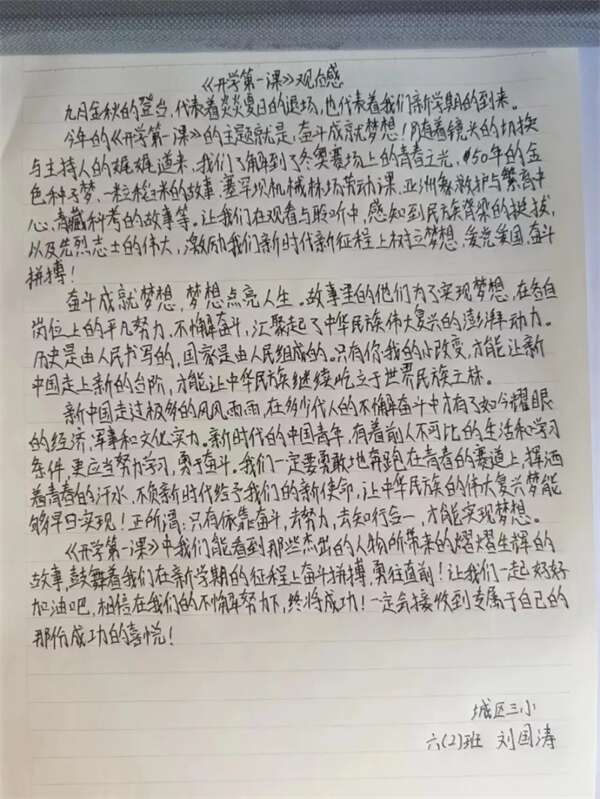 《开学第一课》观后感
九月金秋的登台,代表着炎炎夏日的退场,也代表着我们新学期的到来。
今年的《开学第一课》的主题就是,奋斗成就梦想!随着镜头的切换
与主持人的娓娓道来,我们了解到了冬奥赛场上的青春之光,50年的金
色种子梦、一粒稻米的故事、塞罕坝机械林场劳动课、亚洲象救护与繁育中
心、青藏科考的故事等。让我们在观看与聆听中,感知到民族脊梁的挺拔,
以及先烈志士的伟大,激励我们新时代新征程上树立梦想、爱党爱国、奋斗
拼搏!
奋斗成就梦想,梦想点亮人生。故事里的他们为了实现梦想,在各自
岗位上的平凡努力,不懈奋斗,汇聚起了中华民族伟大复兴的澎湃动力。
历史是由人民书写的,国家是由人民组成的。只有你我的小改变,才能让新
中国走上新的台阶,才能让中华民族继续屹立于世界民族之林。
新中国走过极多的风风雨雨,在多少代人的不懈奋斗中才有了如今耀眼
的经济、军事和文化实力。新时代的中国青年,有着前人不可比的生活和学习
条件,更应当努力学习,勇于奋斗。我们一定要勇敢地奔跑在青春的赛道上,挥洒
着青春的汗水,不负新时代给予我们的新使命,让中华民族的伟大复兴梦能
够早日实现!正所谓:只有依靠奋斗,去努力,去知行合一,才能实现梦想。
《开学第一课》中我们能看到那些杰出的人物所带来的熠熠生辉的
故事,鼓舞着我们在新学期的征程上奋斗拼搏,勇往直前!让我们一起好好
加油吧,相信在我们的不懈努力下,终将成功!一定会接收到专属于自己的
那份成功的喜悦!
城区三小
六(2)班 刘国涛